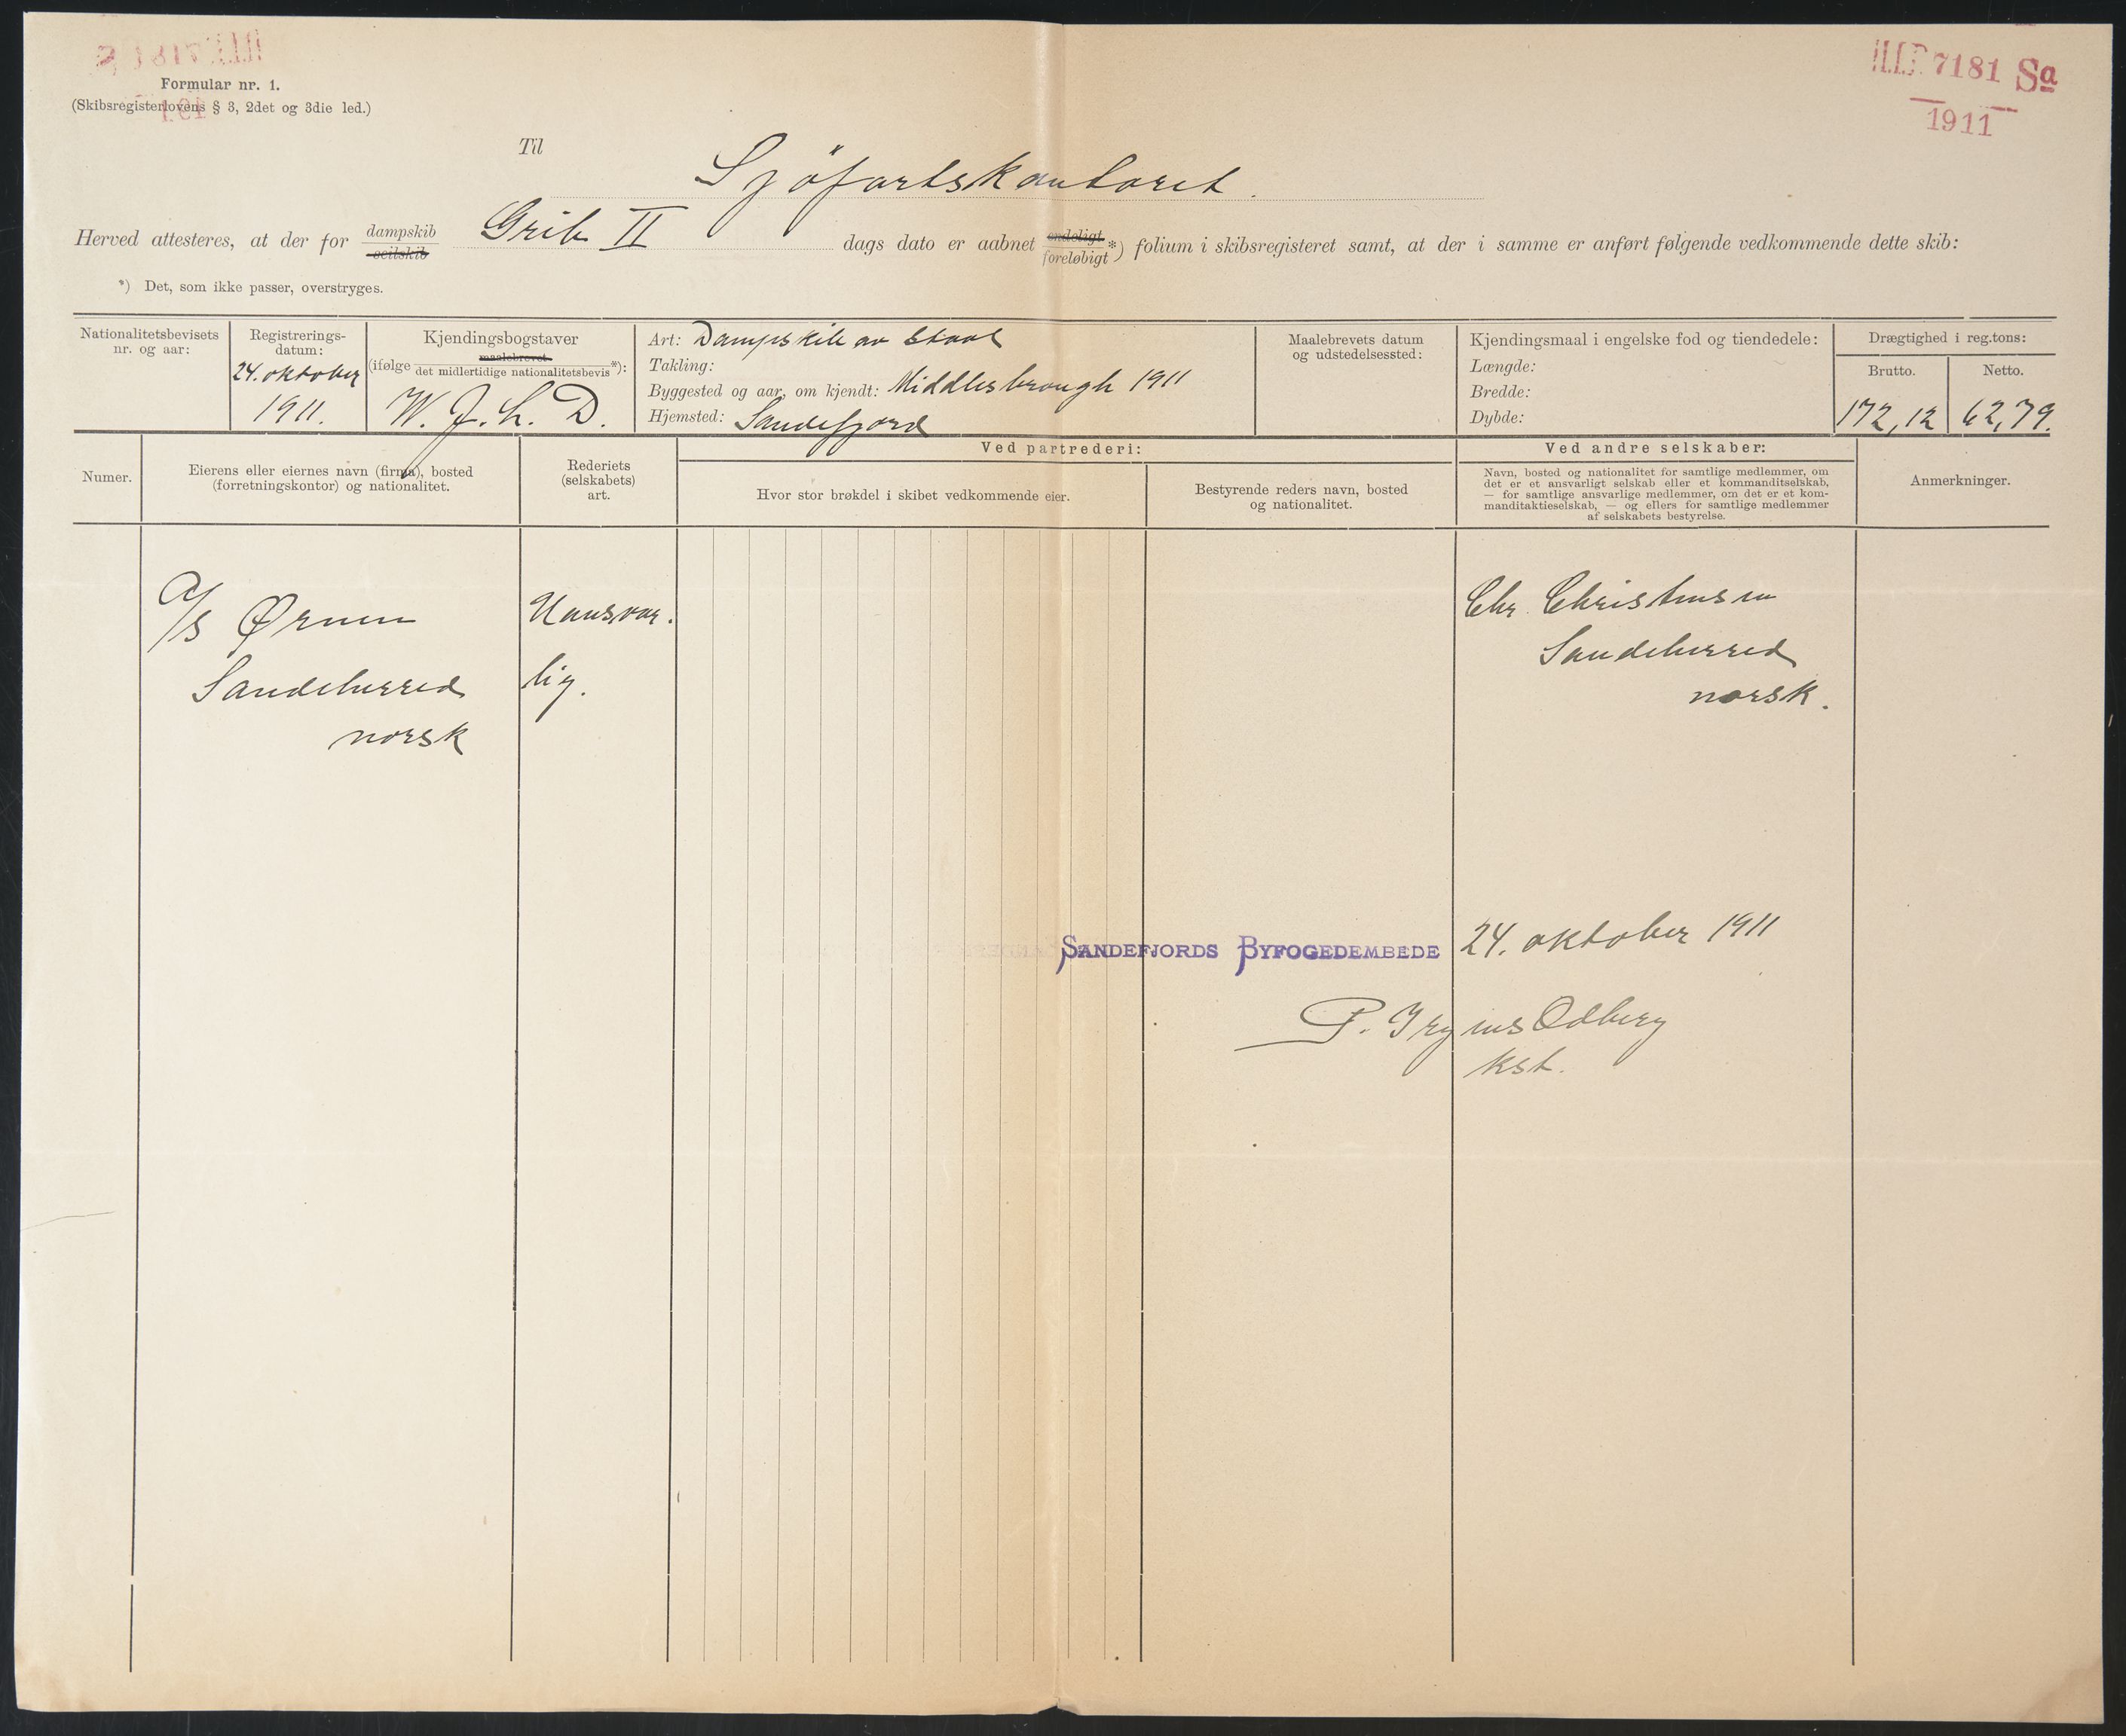 7181 Sa
1911
Formular nr. 1.
(Skibsregisterlovens § 3, 2det og 3die led.)
Til
Sjöfartskontoret.
Herved attesteres, at der for dampskib seilskib Grib II dags dato er aabnet endeligt foreløbigt *) folium i skibsregisteret samt, at der i samme er anført følgende vedkommende dette skib:
*) Det, som ikke passer, overstryges.
Nationalitetsbevisets
nr. og aar:
Registrerings-
datum:
24. oktober
1911.
Kjendingsbogstaver
(ifølge maalebrevet det midlertidige nationalitetsbevis *):
W. J. L. D.
Art: Dampskib av Staal
Takling:
Byggested og aar, om kjendt: Middlesbrough 1911
Hjemsted: Sandefjord
Maalebrevets datum
og udstedelsessted:
Kjendingsmaal i engelske fod og tiendedele:
Længde:
Bredde:
Dybde:
Drægtighed i reg.tons:
Brutto. Netto.
172,12 62,79.
Numer.
Eierens eller eiernes navn (firma), bosted
(forretningskontor) og nationalitet.
Rederiets
(selskabets)
art.
Ved partrederi:
Hvor stor brøkdel i skibet vedkommende eier.
Bestyrende reders navn, bosted
og nationalitet.
Ved andre selskaber:
Navn, bosted og nationalitet for samtlige medlemmer, om
det er et ansvarligt selskab eller et kommanditselskab,
— for samtlige ansvarlige medlemmer, om det er et kom-
manditaktieselskab, — og ellers for samtlige medlemmer
af selskabets bestyrelse.
Anmerkninger.
A/S Ørnen
Sandeherred
norsk
Uansvar.
lig.
Chr. Christensen
Sandeherred
norsk.
SANDEFJORDS BYFOGEDEMBEDE 24. oktober 1911
P. Odberg
kst.